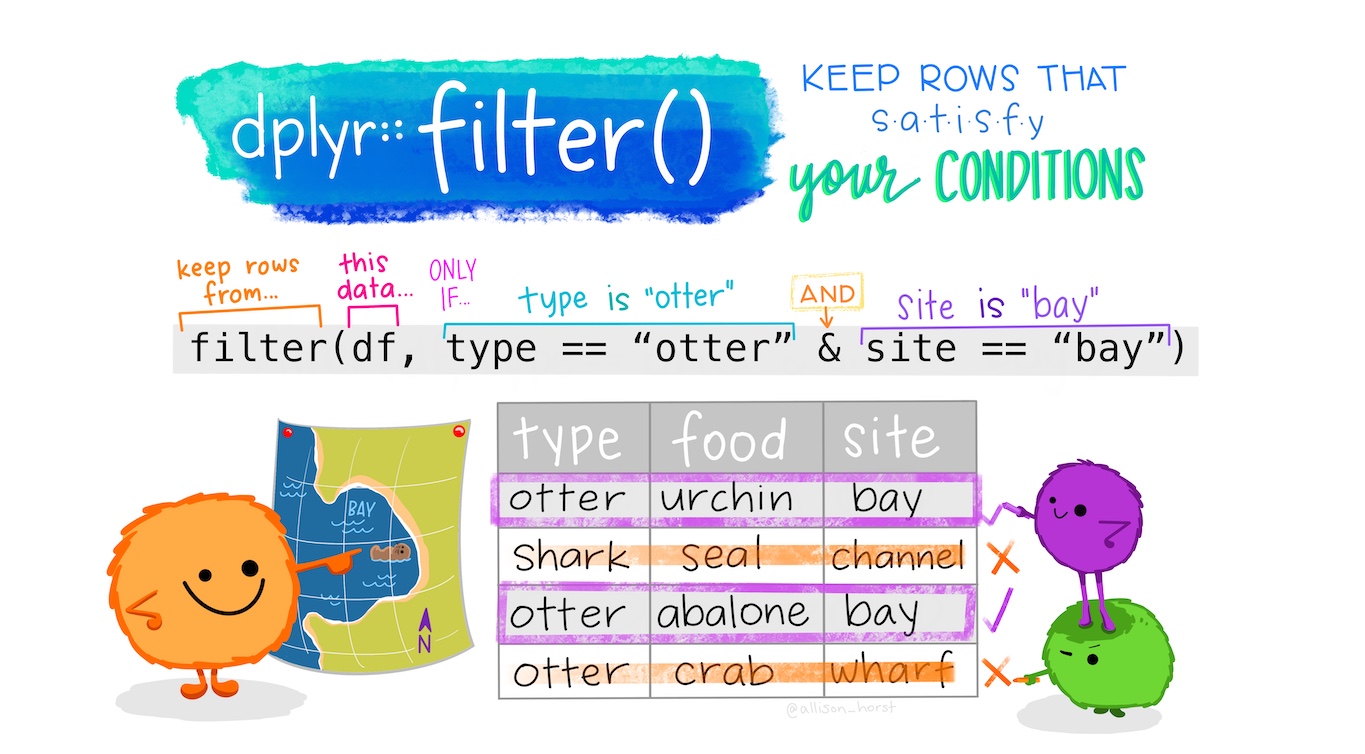 dplyr::filter()
KEEP ROWS THAT
s·a·t·i·s·f·y
your CONDITIONS
keep rows from...
this data...
ONLY IF...
type is "otter"
AND
site is "bay"
filter(df, type == “otter” & site == “bay”)
BAY
N
type food site
otter urchin bay
shark seal channel
otter abalone bay
otter crab wharf
@allison_horst